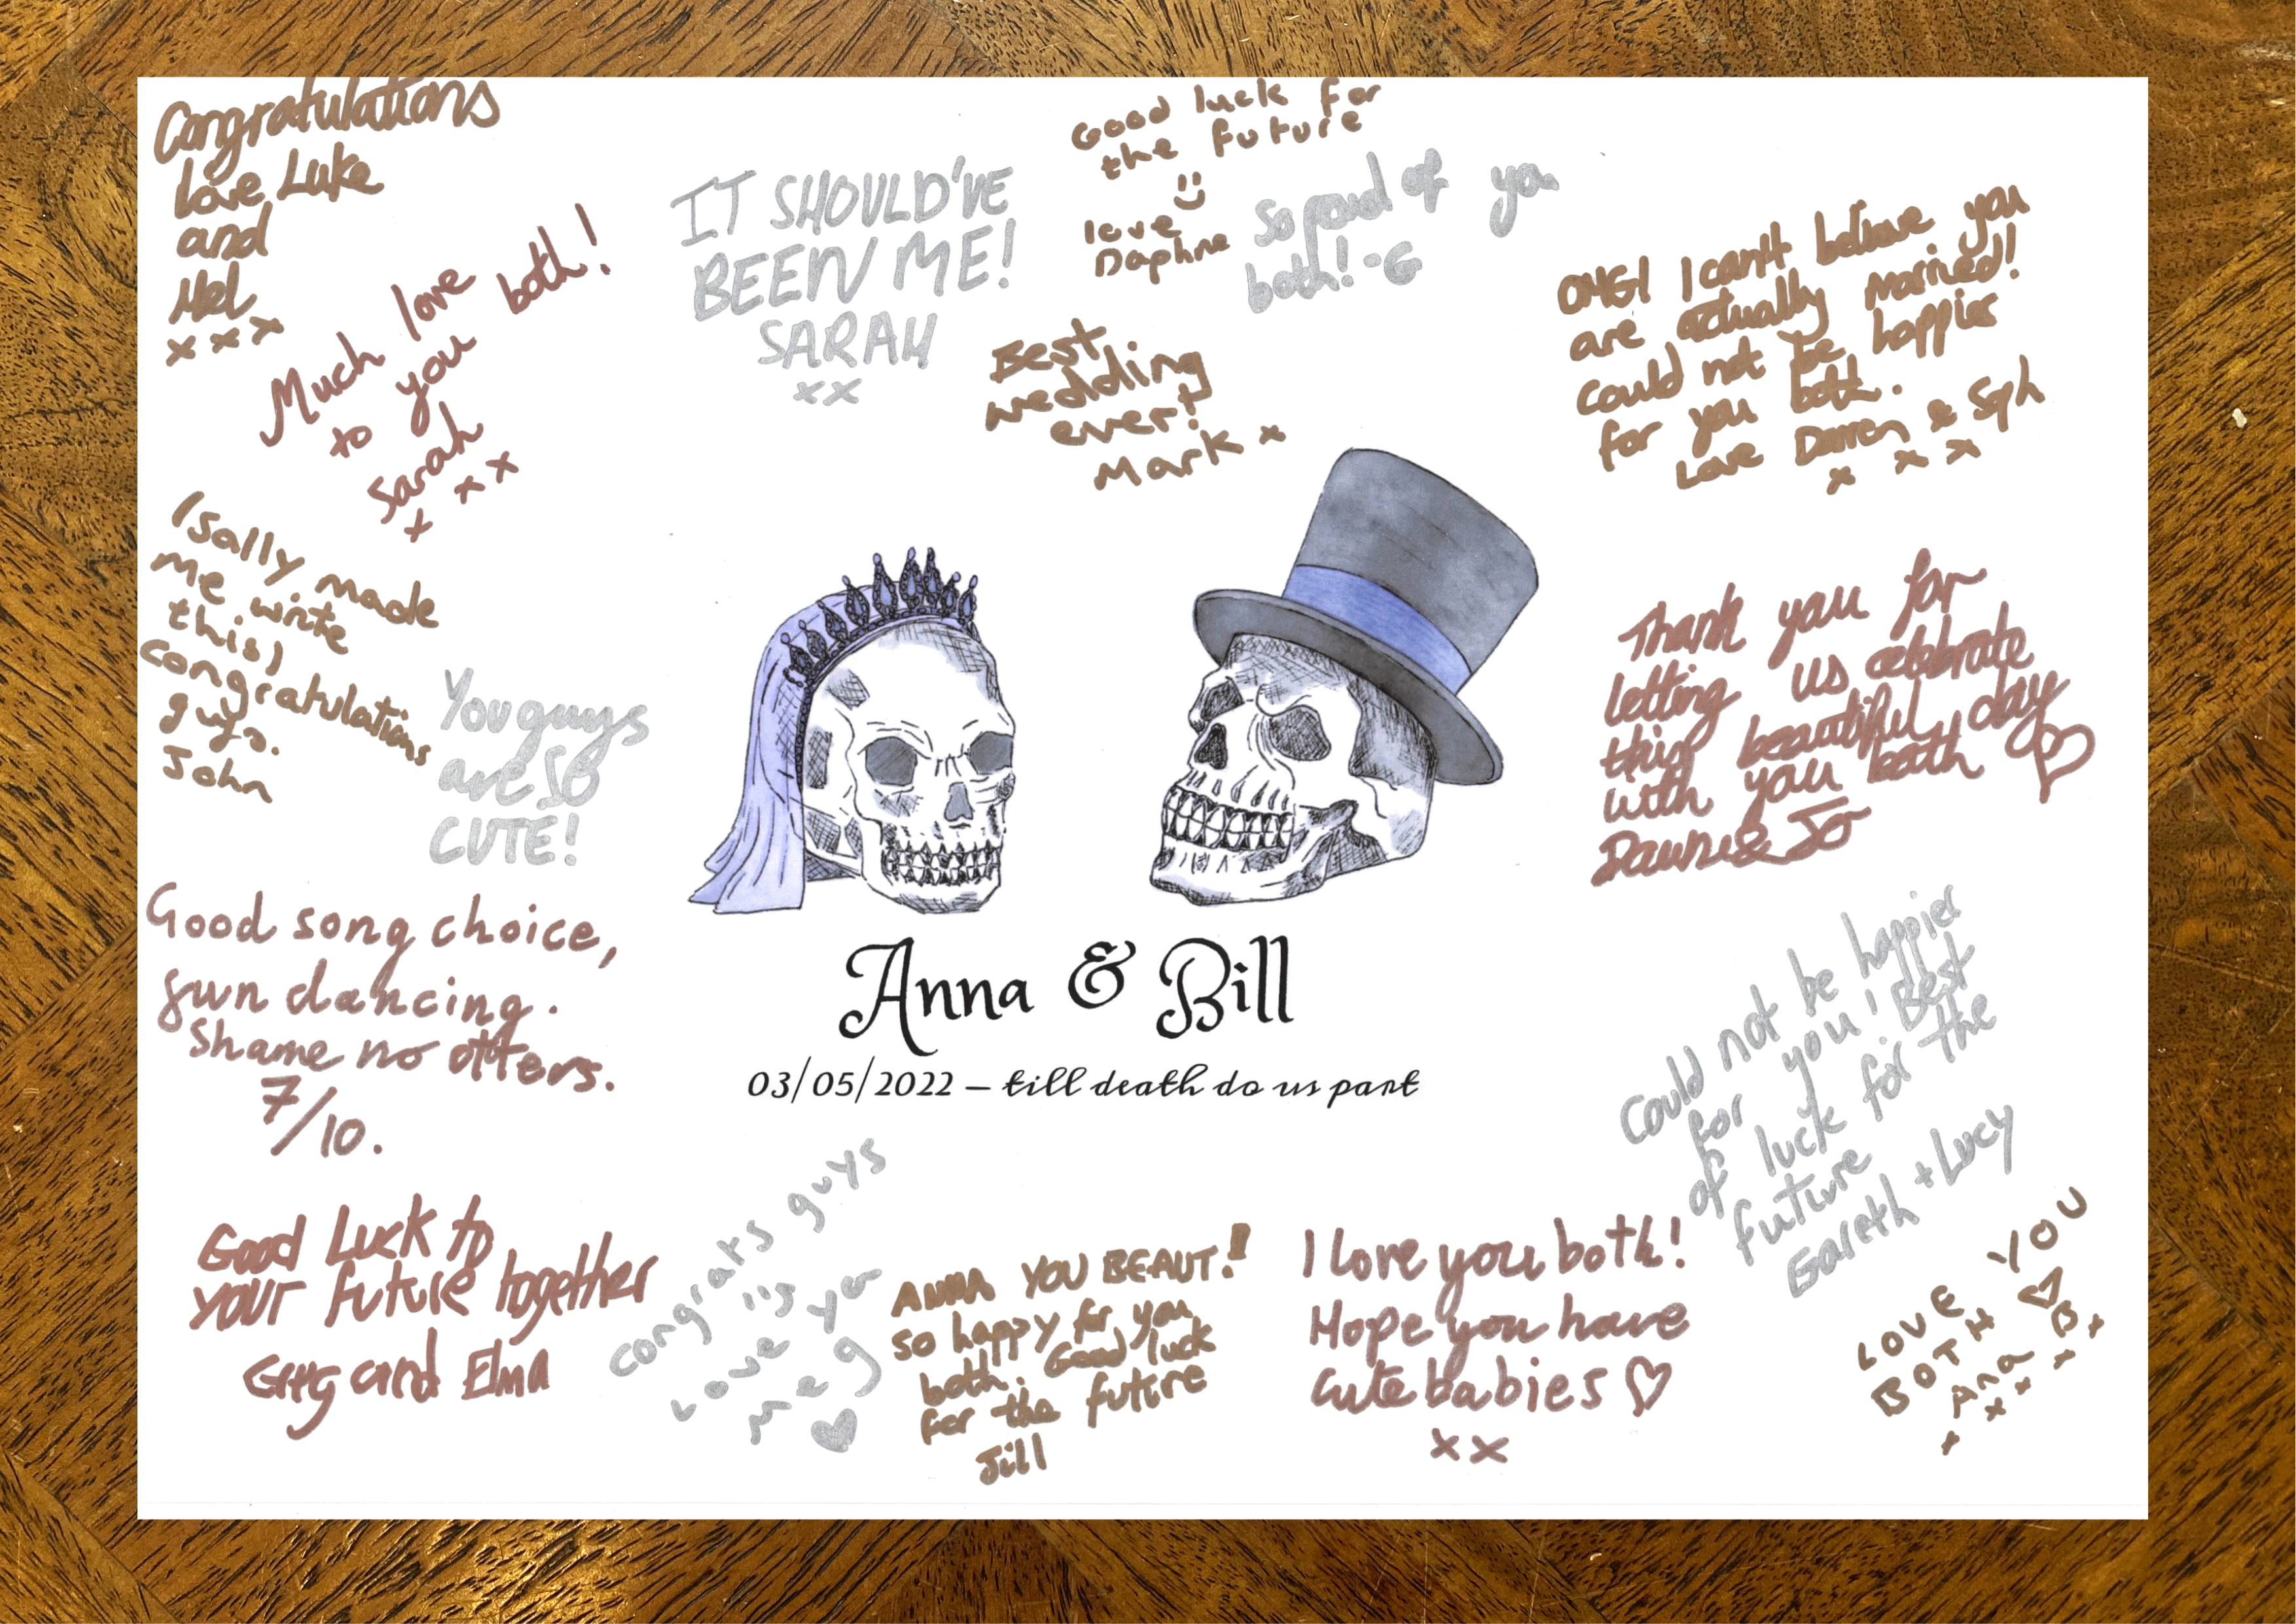 Congratulations
love Luke
and
Mel
x x x
Much love
to you both!
Sarah
x x x
IT SHOULD'VE
BEEN ME!
SARAH
xx
Good luck for
the future
love
Daphne
So proud of you
both! -G
Best
wedding
ever!
Mark x
OMG! I can't believe you
are actually married!
could not be happier
for you both.
Love Darren & Sph
x x x
(Sally made
me write
this)
congratulations
guys.
John
You guys
are SO
CUTE!
Thank you for
letting us celebrate
this beautiful day
with you both
Dawn & Jo
Good song choice,
fun dancing.
Shame no otters.
7/10.
Anna & Bill
03/05/2022 – till death do us part
Could not be happier
for you! Best
of luck for the
future
Gareth + Lucy
Good Luck to
your future together
Greg and Elma
congrats guys
Love you
meg
ANNA YOU BEAUT!
so happy for you
both. Good luck
for the future
Jill
I love you both!
Hope you have
cute babies
xx
LOVE YOU
BOTH
Ana B